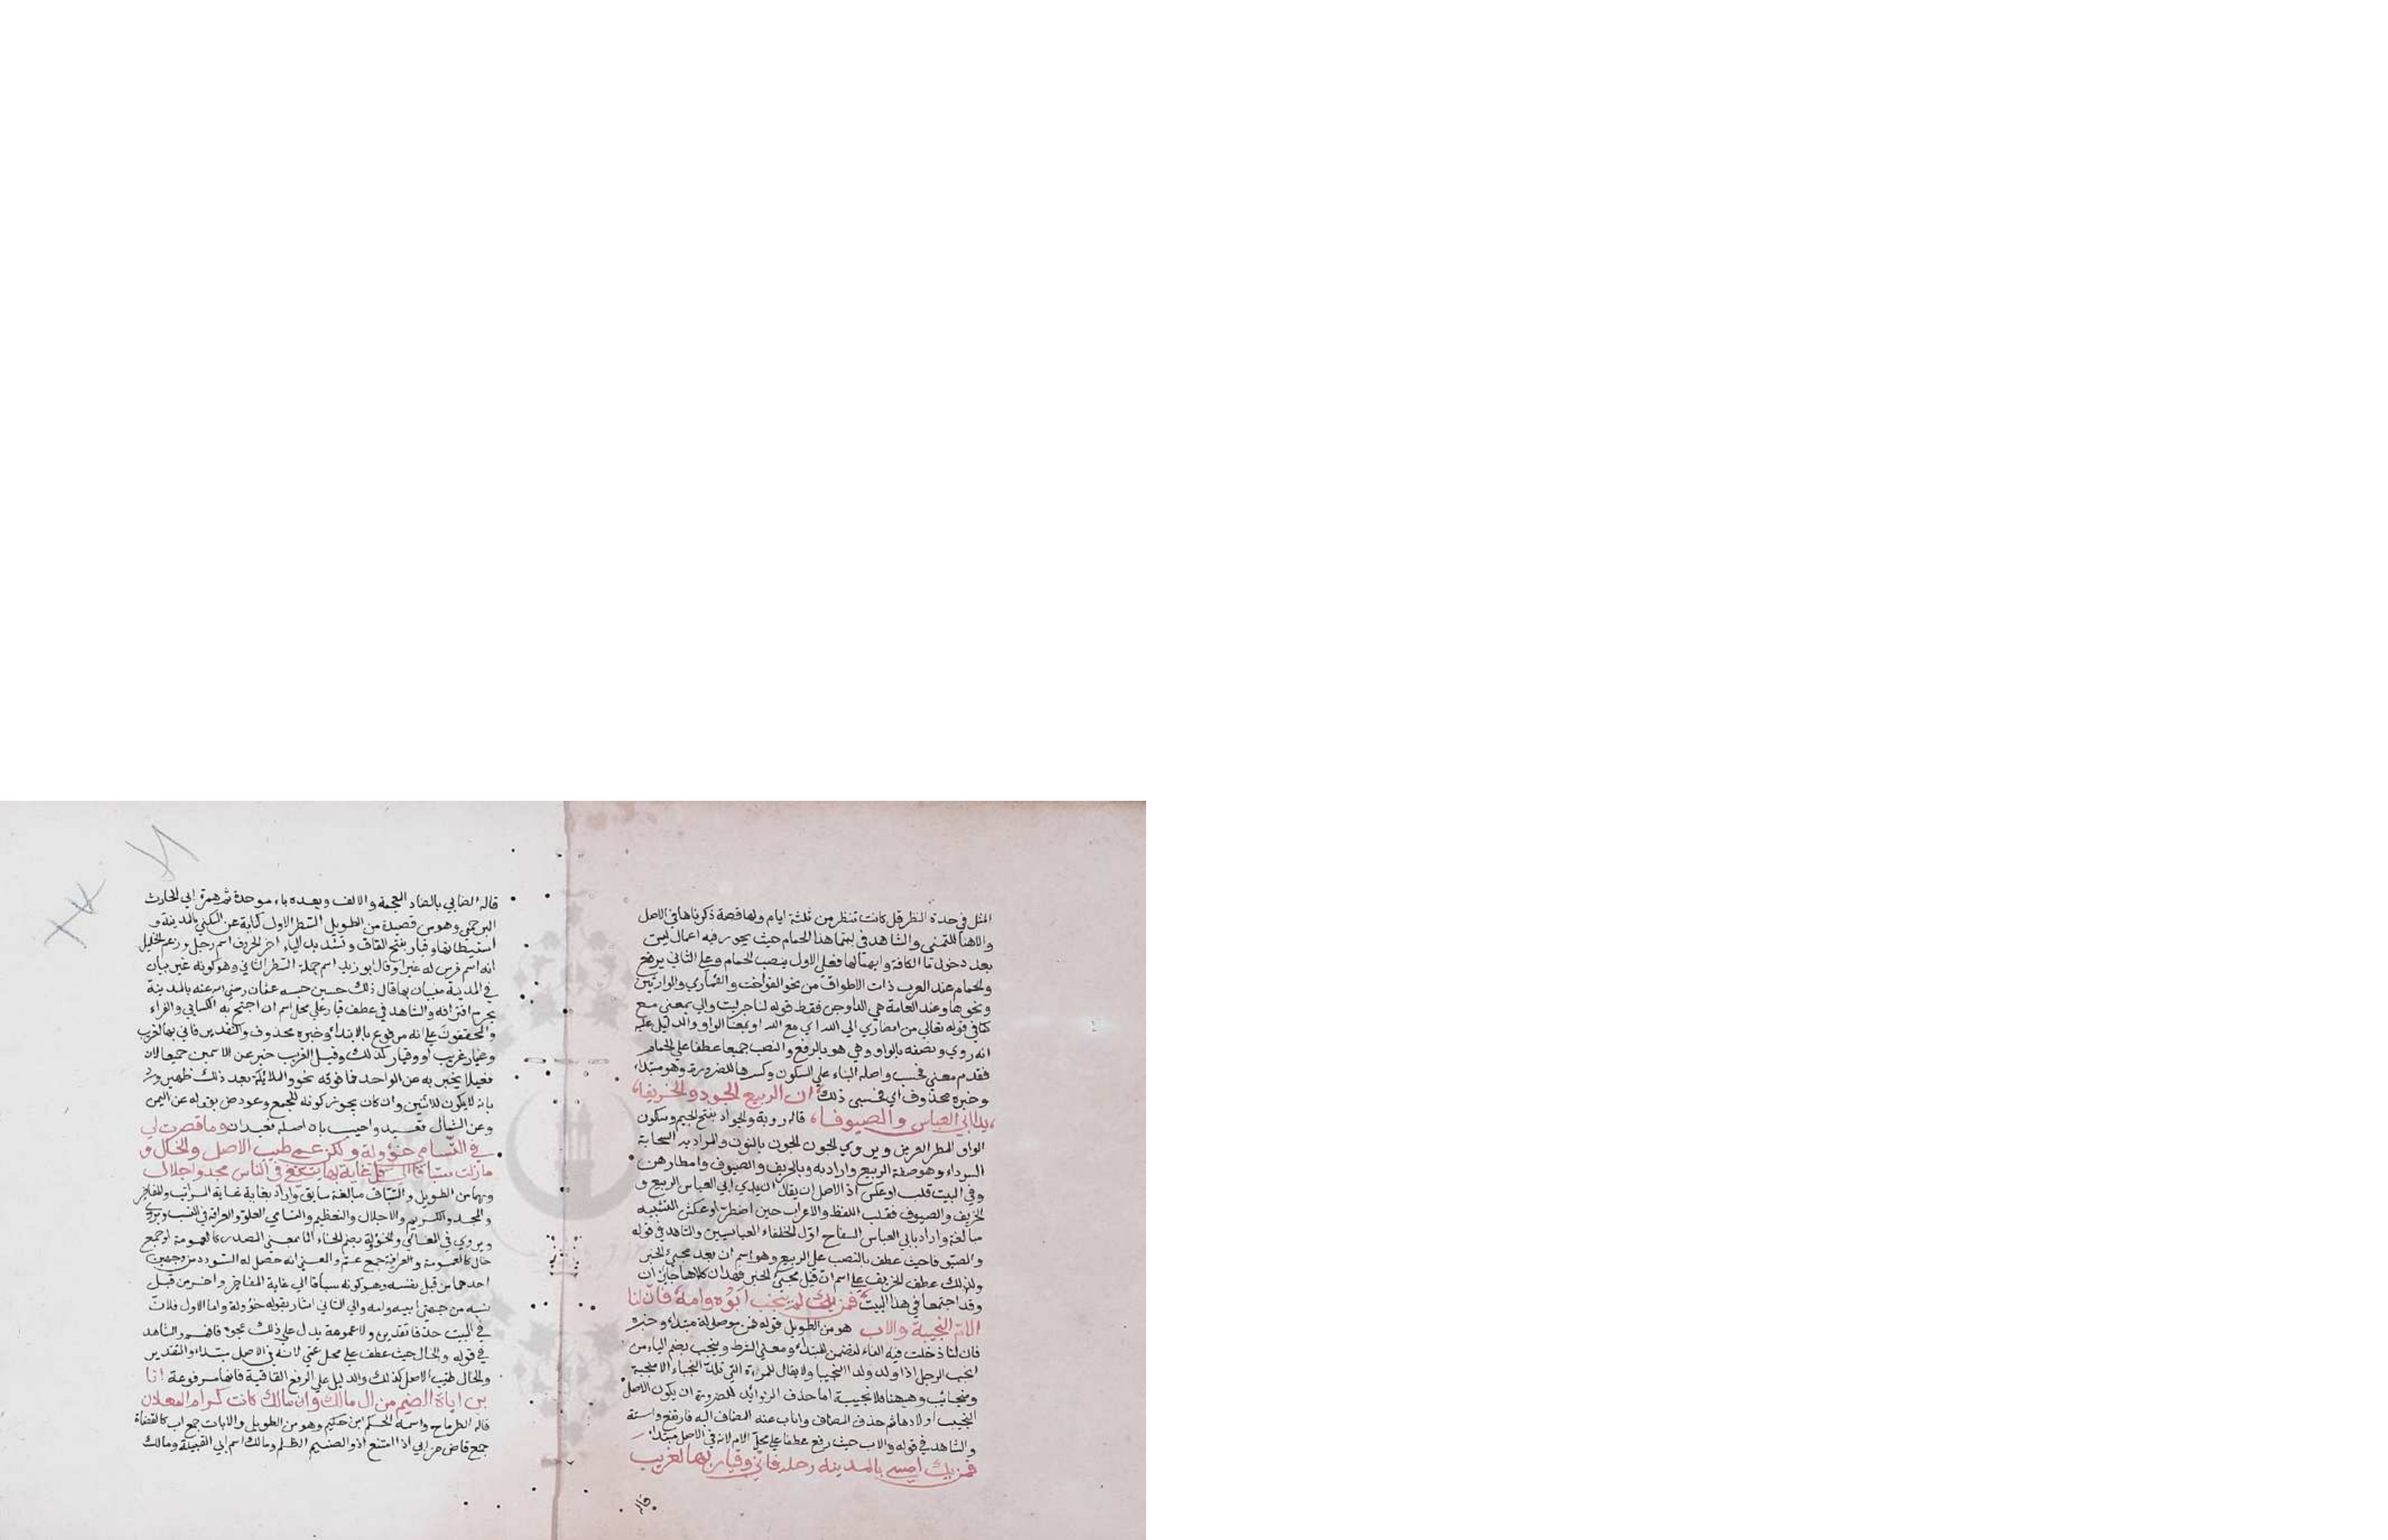 المثل في حدة النظر قيل كانت تنظر من ثلثة ايام ولها قصة ذكرناها في الاصل
والاهنا للتمني والشاهد في ليتما هذا الحمام حيث يجوز فيه اعمال ليت
بعد دخول ما الكافة وابهمالها فعلي الاول ينصب الحمام وعلي الثاني يرفع
والحمام عند العرب ذات الاطواق من نحو الفواخت والقماري والوارشين
ونحوها وعند العامة هي الدواجن فقط قوله لنا خبر ليت والي بمعني مع
كما في قوله تعالي من انصاري الي الله اي مع الله او بمعنا الواو والدليل عليه
انه روي ونصفه بالواو وهي هو بالرفع والنصب جميعا عطفا علي الحمام
فقدم معني فحسب واصله البناء علي السكون وكسرها للضرورة وهو مبتداء
وخبره محذوف اي فحسبي ذلك ان الربيع الجود والخريفا
يدا ابي العباس والصيوفا قاله روبة والجواد بفتح الجيم وسكون
الواو المطر الغزير ويروي الجون الجون بالنون والمراد به السحابة
السوداء وهو صفة الربيع واراد به وبالخريف والصيوف وامطارهن
وفي البيت قلب او عكس اذ الاصل ان يقال ان يدي ابي العباس الربيع و
الخريف والصيوف فقلب اللفظ والاعراب حين اضطر او عكس التشبيه
مبالغة واراد بابي العباس السفاح اول الخلفاء العباسيين والشاهد في قوله
والصيوفا حيث عطف بالنصب علي الربيع وهو اسم ان بعد مجيئ الخبر
ولذلك عطف الخريف علي اسم ان قبل مجيئ الخبر فهذان كلاهما جائزان
وقد اجتمعا في هذا البيت فمن يك لم ينجب ابوه وامه فان لنا
الام النجيبة والاب هو من الطويل قوله فمن موصلة مبتداء وخبره
فان لنا دخلت فيه الفاء لتضمن المبتداء ومعني الشرط وينجب بضم الياء من
انجب الرجل اذا ولد ولدا نجيبا ولا يقال للمراة التي تلد النجباء الا منجبة
ومنجاب وههنا فلا نجيبة اما حذف الزوائد للضرورة ان يكون الاصل
النجيب اولادها ثم حذف المضاف واناب عنه المضاف اليه فارتفع واستة
والشاهد في قوله والاب حيث رفع عطفا علي محل الام لانه في الاصل مبتداء
فمن يك امسي بالمدينة رحله فاني وقيار بها لغريب
قاله
قاله الضابي بالضاد المعجمة والالف وبعده باء موحدة ثم همزة ابن الحارث
البرجمي وهو من قصيدة من الطويل الشطر الاول كناية عن السكني بالمدينة و
استيطانها وقيار بفتح القاف وتشديد الياء اخر الحروف اسم رجل وزعم الخليل
انه اسم فرس له غبرا وقال ابو زيد اسم جمله الشطر الثاني وهو كونه غير بيان
في المدينة مبيان بها قال ذلك حين حبسه عثمان رضي الله عنه بالمدينة
بجرم افترافه والشاهد في عطف قيار علي محل اسم ان احتج به الكسائي والفراء
والمحققون علي انه مرفوع بالابتداء وخبره محذوف والتقدير فاني بها لغريب
وقيار غريب او وقيار كذلك وقيل الغريب خبر عن الاسمين جميعا لان
فعيلا يخبر به عن الواحد فما فوقه نحو والملائكة بعد ذلك ظهير ورد
بانه لا يكون للاثنين وان كان يجوز كونه للجمع وعورض بقوله عن اليمين
وعن الشمال قعيد واجيب بان اصله قعيدان وما قصرت لي
في التسامي خؤولة ولكن عمي طيب الاصل والخال و
مازلت سباقا الي كل غاية بها يبتغي في الناس مجد واجلال
وهما من الطويل والسباف مبالغة سابق واراد بغاية غاية المراتب والمفاخر
والمجد والكريم والاجلال والتعظيم والتسامي العلو والعراقة في النسب ويروي
ويروي في المعالي والخؤولة بضم الخاء اما بمعني المصدر كالعمومة او جمع
خال كالعمومة والعرافة جمع عم والمعني انه حصل له السودد من وجهين
احدهما من قبل نفسه وهو كونه سباقا الي غاية المفاخر واخر من قبل
نسبه من جهتي ابيه وامه والي الثاني اشار بقوله خؤولة واما الاول فلان
في البيت حذفا تقديره ولا عمومة يدل علي ذلك عجزه فافهم والشاهد
في قوله والخال حيث عطف علي محل عمي لانه في الاصل مبتداء والتقدير
والخال طيب الاصل كذلك والدليل علي الرفع القافية فانها مرفوعة انا
بن اباة الضيم من ال مالك وان مالك كانت كرام المعادن
قاله الطرماح واسمه الحكم ابن حكيم وهو من الطويل والابات جمع اب كالقضاة
جمع قاض من ابي اذا امتنع اذ والضيم الظلم ومالك اسم ابي القبيلة ومالك